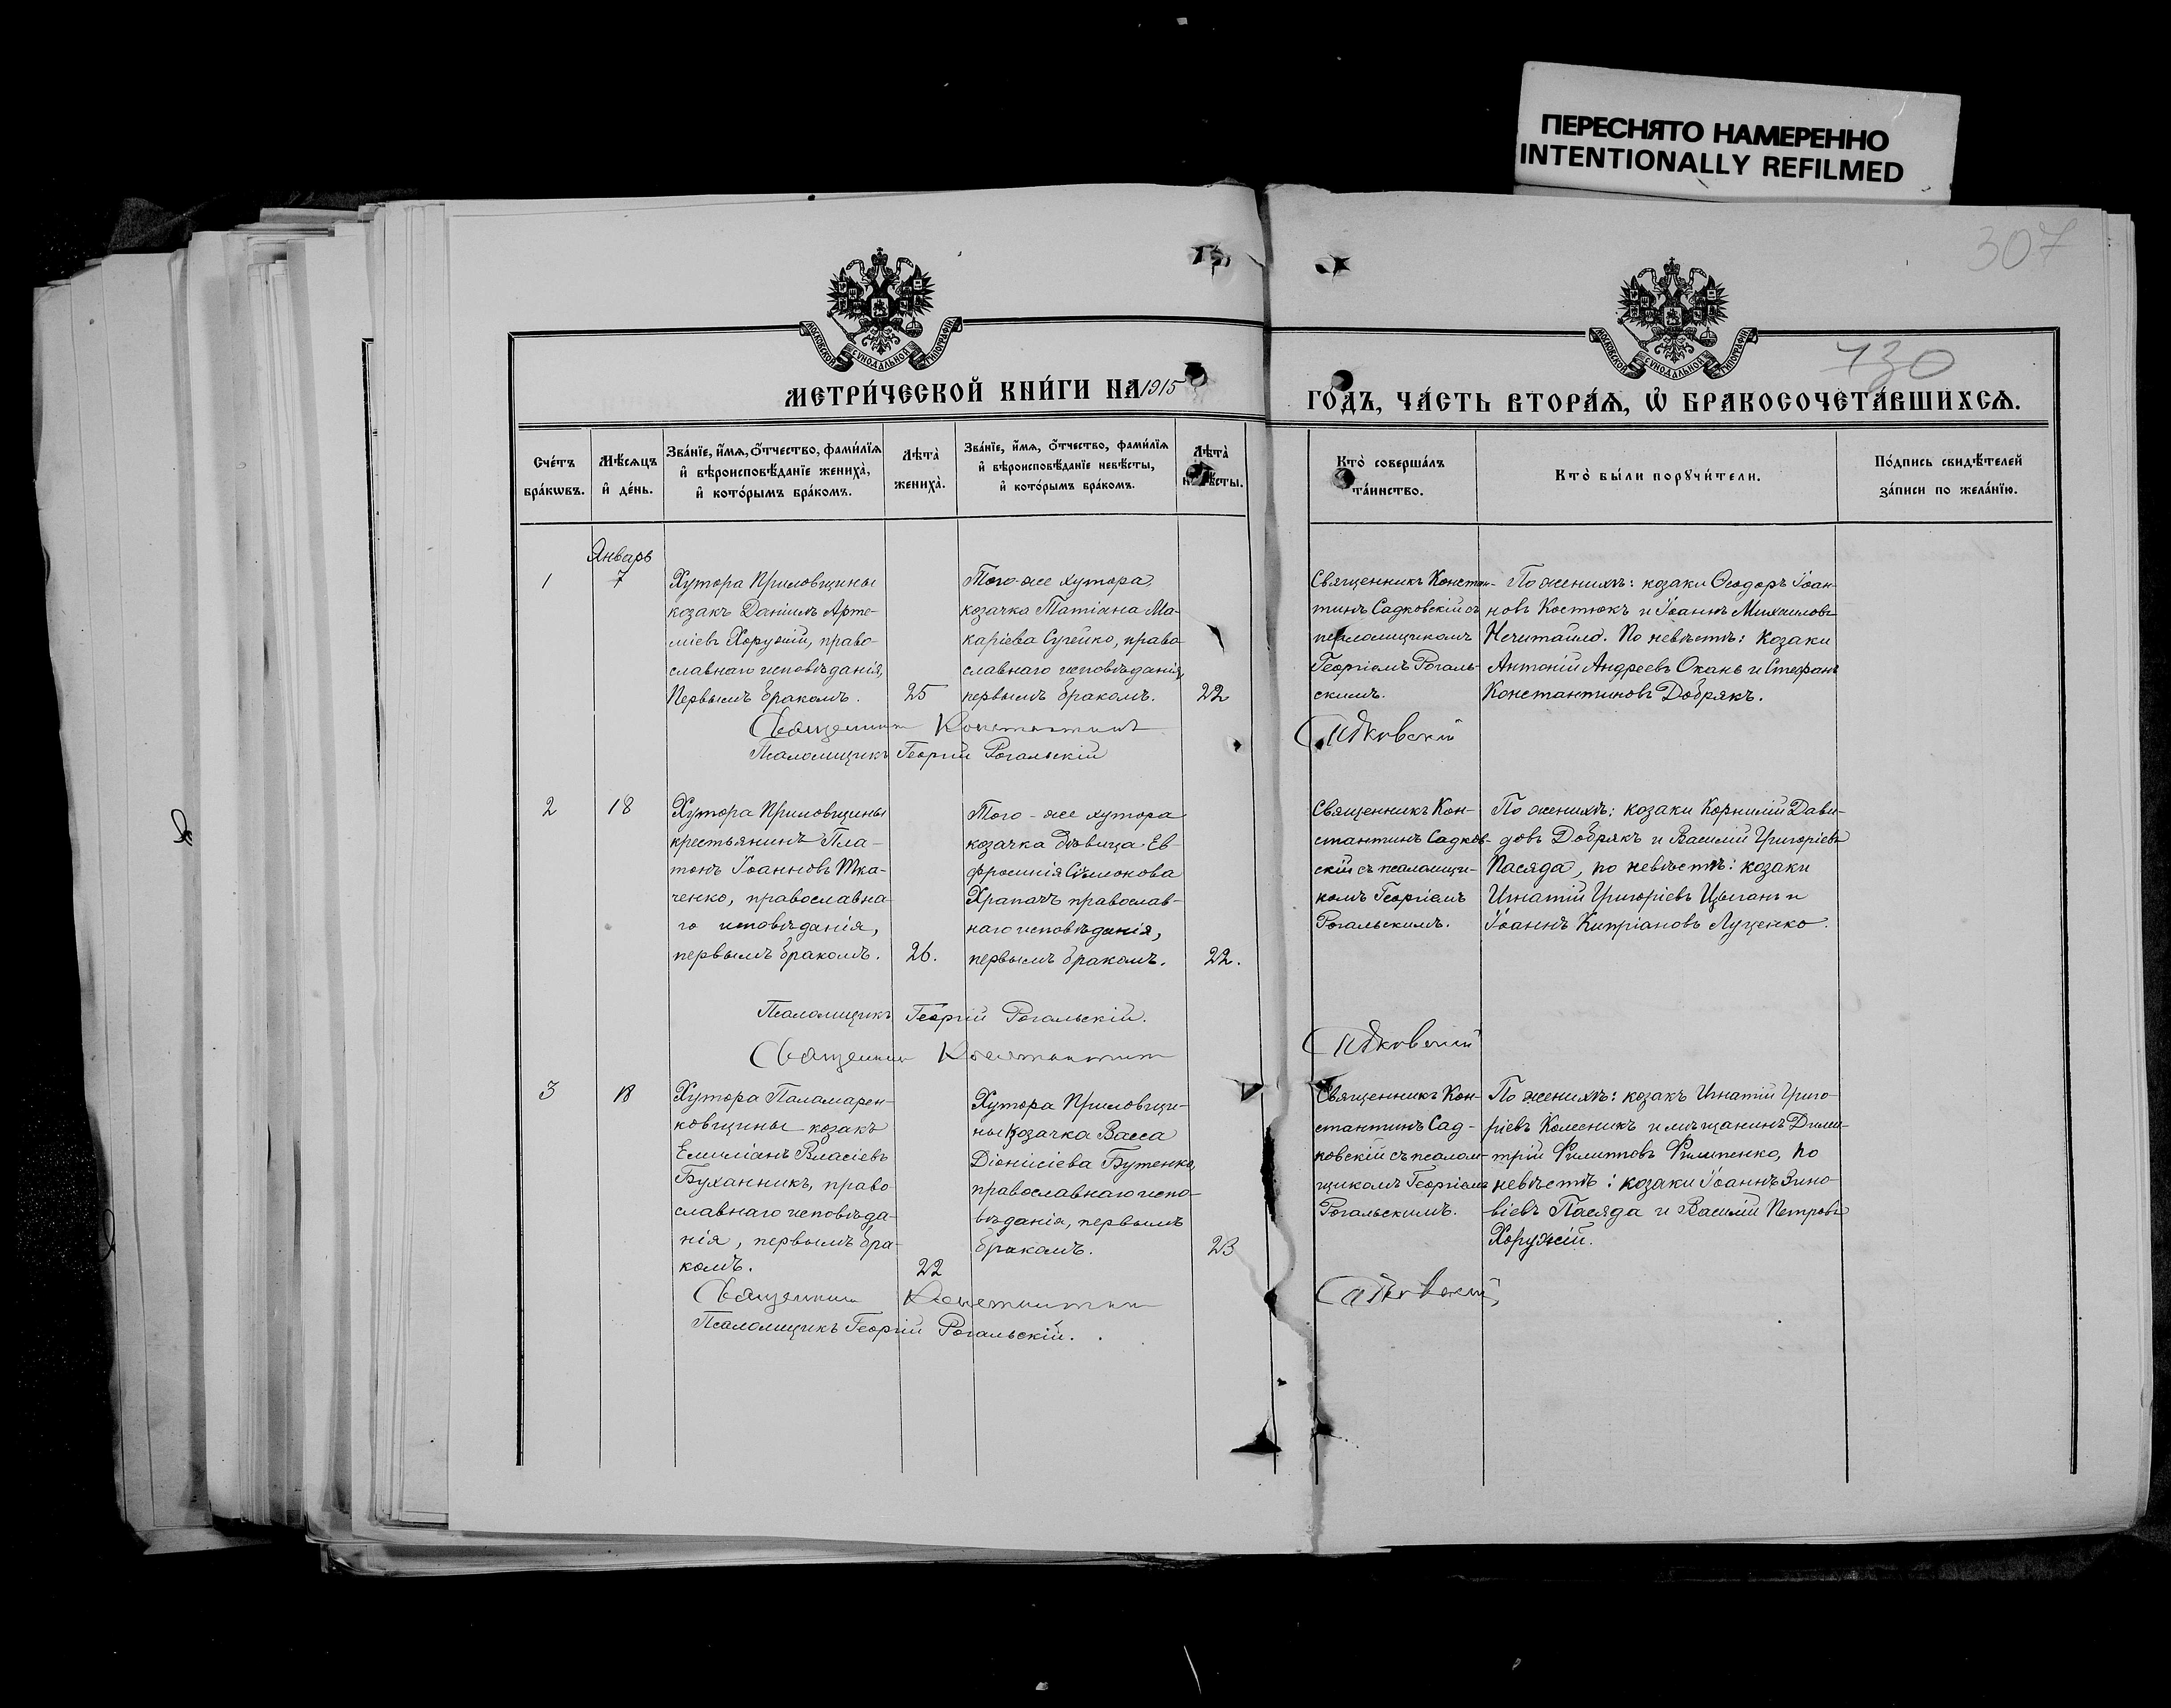 ПЕРЕСНЯТО НАМЕРЕННО
INTENTIONALLY REFILMED
307
730
МОСКОВСКОЙ СУНОДАЛЬНОЙ ТИПОГРАФІИ
МОСКОВСКОЙ СУНОДАЛЬНОЙ ТИПОГРАФІИ
МЕТРИ́ЧЕСКОЙ КНИ́ГИ НА 1915
ГО́ДЪ, ЧА́СТЬ ВТОРА́Ѧ, Ѡ҆ БРАКОСОЧЕТА́ВШИХСѦ.
Сче́тъ
бра́кѡвъ.
Мѣ́сѧцъ
и҆ де́нь.
Зва́нїе, и҆́мѧ, ѻ҆́тчество, фами́лїѧ
и҆ вѣроисповѣ́данїе жениха̀,
и҆ кото́рымъ бра́комъ.
Лѣта̀
жениха̀.
Зва́нїе, и҆́мѧ, ѻ҆́тчество, фами́лїѧ
и҆ вѣроисповѣ́данїе невѣ́сты,
и҆ кото́рымъ бра́комъ.
Лѣта̀
невѣ́сты.
Кто̀ соверша́лъ
та́инство.
Кто̀ бы́ли порꙋчи́тели.
По́дпись свидѣ́телей
за́писи по жела́нїю.
Январь
1
7
Хутора Приловщины
козакъ Даніилъ Арте-
міевъ Хоружій, право-
славнаго исповѣданія,
первымъ бракомъ.
25
Того-же хутора
козачка Татіана Ма-
каріева Сугейко, право-
славнаго исповѣданія,
первымъ бракомъ.
22
Священникъ Констан-
тинъ Садковскій съ
псаломщикомъ
Георгіемъ Рогаль-
скимъ.
По женихѣ: козаки Ѳеодоръ Іоан-
новъ Костюкъ и Іоаннъ Михаиловъ
Нечитайло. По невѣстѣ: козаки
Антоній Андреевъ Окань и Стефанъ
Константиновъ Добрякъ.
Священникъ Константинъ Садковскій
Псаломщикъ Георгій Рогальскій
2
18
Хутора Приловщины
крестьянинъ Пла-
тонъ Іоанновъ Тка-
ченко, православна-
го исповѣданія,
первымъ бракомъ.
26.
Того-же хутора
козачка дѣвица Ев-
фросинія Симонова
Храпачъ православ-
наго исповѣданія,
первымъ бракомъ.
22.
Священникъ Кон-
стантинъ Садков-
скій съ псаломщи-
комъ Георгіемъ
Рогальскимъ.
По женихѣ: козаки Корнилій Дави-
довъ Добрякъ и Василій Григоріевъ
Пасяда, по невѣстѣ: козаки
Игнатій Григоріевъ Цыганъ и
Іоаннъ Кипріановъ Луценко.
Псаломщикъ Георгій Рогальскій.
Священникъ Константинъ Садковскій
3
18
Хутора Паламарен-
ковщины козакъ
Емиліанъ Власіевъ
Буханникъ, право-
славнаго исповѣда-
нія, первымъ бра-
комъ.
22
Хутора Приловщи-
ны козачка Васса
Діонисіева Бутенко,
православнаго испо-
вѣданія, первымъ
бракомъ.
23
Священникъ Кон-
стантинъ Сад-
ковскій съ псалом-
щикомъ Георгіемъ
Рогальскимъ.
По женихѣ: козакъ Игнатій Григо-
ріевъ Колесникъ и мѣщанинъ Дими-
трій Филипповъ Филипенко, по
невѣстѣ: козаки Іоаннъ Зино-
віевъ Пасяда и Василій Петровъ
Хоружій.
Священникъ Константинъ Садковскій
Псаломщикъ Георгій Рогальскій.